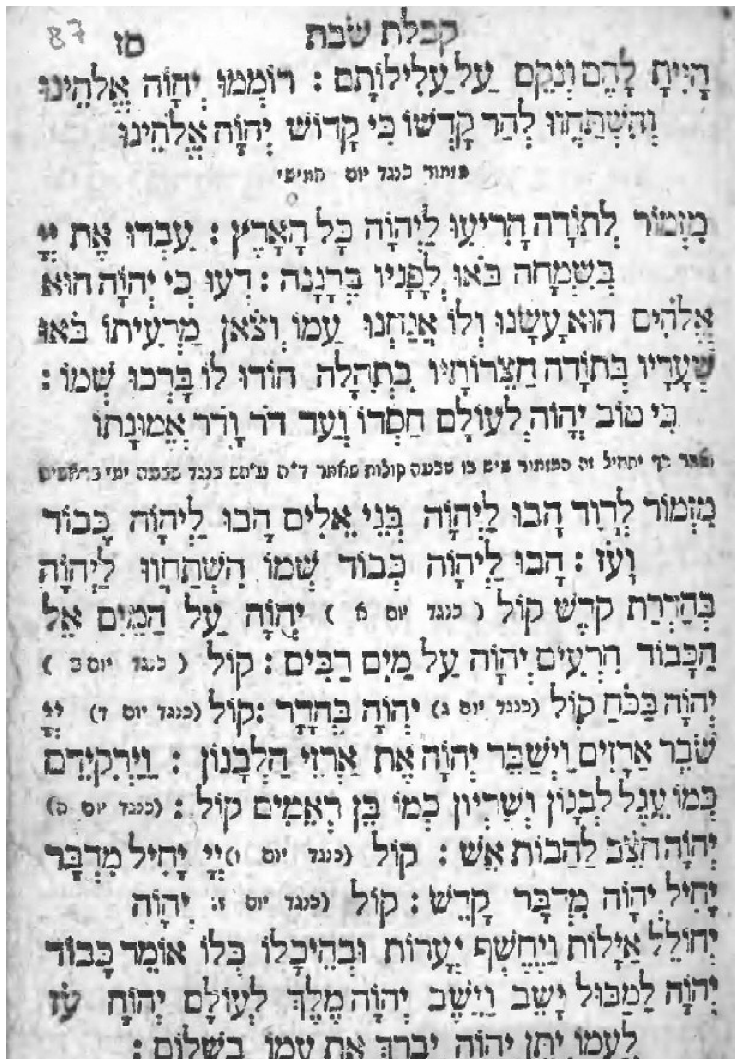 87 סז קבלת שבת
הָיִיתָ לָהֶם וְנֹקֵם עַל עֲלִילוֹתָם : רוֹמְמוּ יְהֹוָה אֱלֹהֵינוּ
וְהִשְׁתַּחֲווּ לְהַר קָדְשׁוֹ כִּי קָדוֹשׁ יְהֹוָה אֱלֹהֵינוּ
מזמור כנגד יום חמישי
מִזְמוֹר לְתוֹדָה הָרִיעוּ לַיְהֹוָה כָּל הָאָרֶץ : עִבְדוּ אֶת יְיָ
בְּשִׂמְחָה בֹּאוּ לְפָנָיו בִּרְנָנָה : דְּעוּ כִּי יְהֹוָה הוּא
אֱלֹהִים הוּא עָשָׂנוּ וְלוֹ אֲנַחְנוּ עַמּוֹ וְצֹאן מַרְעִיתוֹ בֹּאוּ
שְׁעָרָיו בְּתוֹדָה חֲצֵרוֹתָיו בִּתְהִלָּה הוֹדוּ לוֹ בָּרְכוּ שְׁמוֹ :
כִּי טוֹב יְהֹוָה לְעוֹלָם חַסְדּוֹ וְעַד דֹּר וָדֹר אֱמוּנָתוֹ
ואחר כך יתחיל זה המזמור שיש בו שבעה קולות שאמר ד״ה ע״הם כנגד שבעה ימי בראשית
מִזְמוֹר לְדָוִד הָבוּ לַיְהֹוָה בְּנֵי אֵלִים הָבוּ לַיְהֹוָה כָּבוֹד
וָעֹז : הָבוּ לַיְהֹוָה כְּבוֹד שְׁמוֹ הִשְׁתַּחֲווּ לַיְהֹוָה
בְּהַדְרַת קֹדֶשׁ קוֹל ( כנגד יום א ) יְהֹוָה עַל הַמַּיִם אֵל
הַכָּבוֹד הִרְעִים יְהֹוָה עַל מַיִם רַבִּים : קוֹל ( כנגד יום ב )
יְהֹוָה בַּכֹּחַ קוֹל (כנגד יום ג) יְהֹוָה בֶּהָדָר : קוֹל (כנגד יום ד) יְיָ
שֹׁבֵר אֲרָזִים וַיְשַׁבֵּר יְהֹוָה אֶת אַרְזֵי הַלְּבָנוֹן : וַיַּרְקִידֵם
כְּמוֹ עֵגֶל לְבָנוֹן וְשִׂרְיוֹן כְּמוֹ בֶן רְאֵמִים קוֹל : (כנגד יום ה)
יְהֹוָה חֹצֵב לַהֲבוֹת אֵשׁ : קוֹל (כנגד יום ו) יְיָ יָחִיל מִדְבָּר
יָחִיל יְהֹוָה מִדְבַּר קָדֵשׁ : קוֹל (כנגד יום ז) יְהֹוָה
יְחוֹלֵל אַיָּלוֹת וַיֶּחֱשֹׂף יְעָרוֹת וּבְהֵיכָלוֹ כֻּלּוֹ אוֹמֵר כָּבוֹד
יְהֹוָה לַמַּבּוּל יָשַׁב וַיֵּשֶׁב יְהֹוָה מֶלֶךְ לְעוֹלָם יְהֹוָה עֹז
לְעַמּוֹ יִתֵּן יְהֹוָה יְבָרֵךְ אֶת עַמּוֹ בַשָּׁלוֹם :